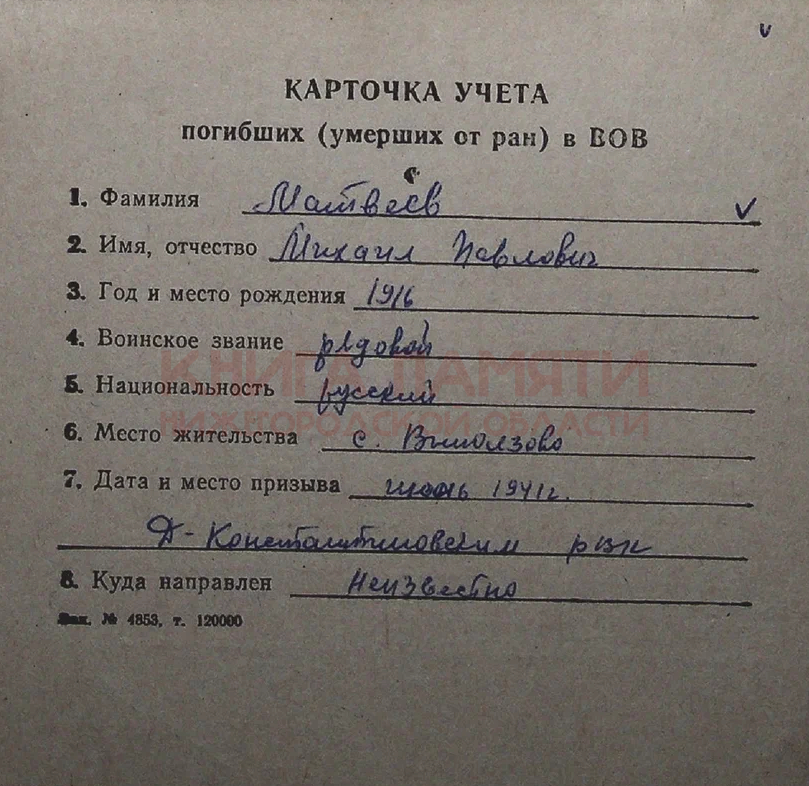 КАРТОЧКА УЧЕТА
погибших (умерших от ран) в ВОВ
1. Фамилия Матвеев
2. Имя, отчество Михаил Павлович
3. Год и место рождения 1916
4. Воинское звание рядовой
КНИГА ПАМЯТИ
5. Национальность русский
НИЖЕГОРОДСКОЙ ОБЛАСТИ
6. Место жительства с. Выползово
7. Дата и место призыва 1941г.
Д-Константиновским рвк
8. Куда направлен Неизвестно
Зак. № 4853, т. 120000